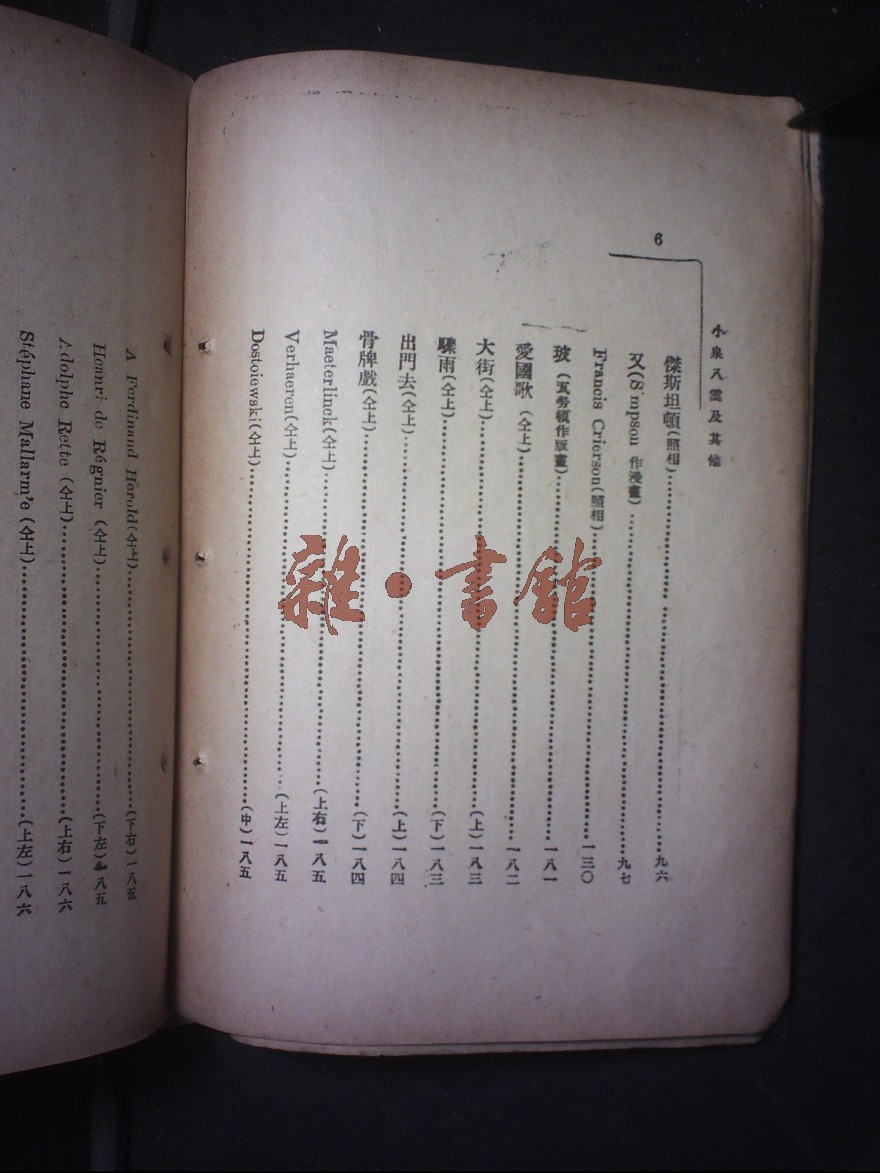 小泉八雲及其他
6
傑斯坦頓(照相)……九六
又(S mpson 作漫畫)……九七
Francis Crierson(照相)……一三〇
玻(瓦勞頓作版畫)……一八一
愛國歌(仝上)……一八二
大街(仝上)……(上)一八三
驟雨(仝上)……(下)一八三
出門去(仝上)……(上)一八四
骨牌戲(仝上)……(下)一八四
Maeterlinck(仝上)……(上右)一八五
Verhaeren(仝上)……(上左)一八五
Dostoiewski(仝上)……(中)一八五
A Ferdinand Herold(仝上)……(下右)一八五
Henri de Régnier(仝上)……(下左)一八五
Adolphe Rette(仝上)……(上右)一八六
Stéphane Mallarm'e(仝上)……(上左)一八六
雜·書館